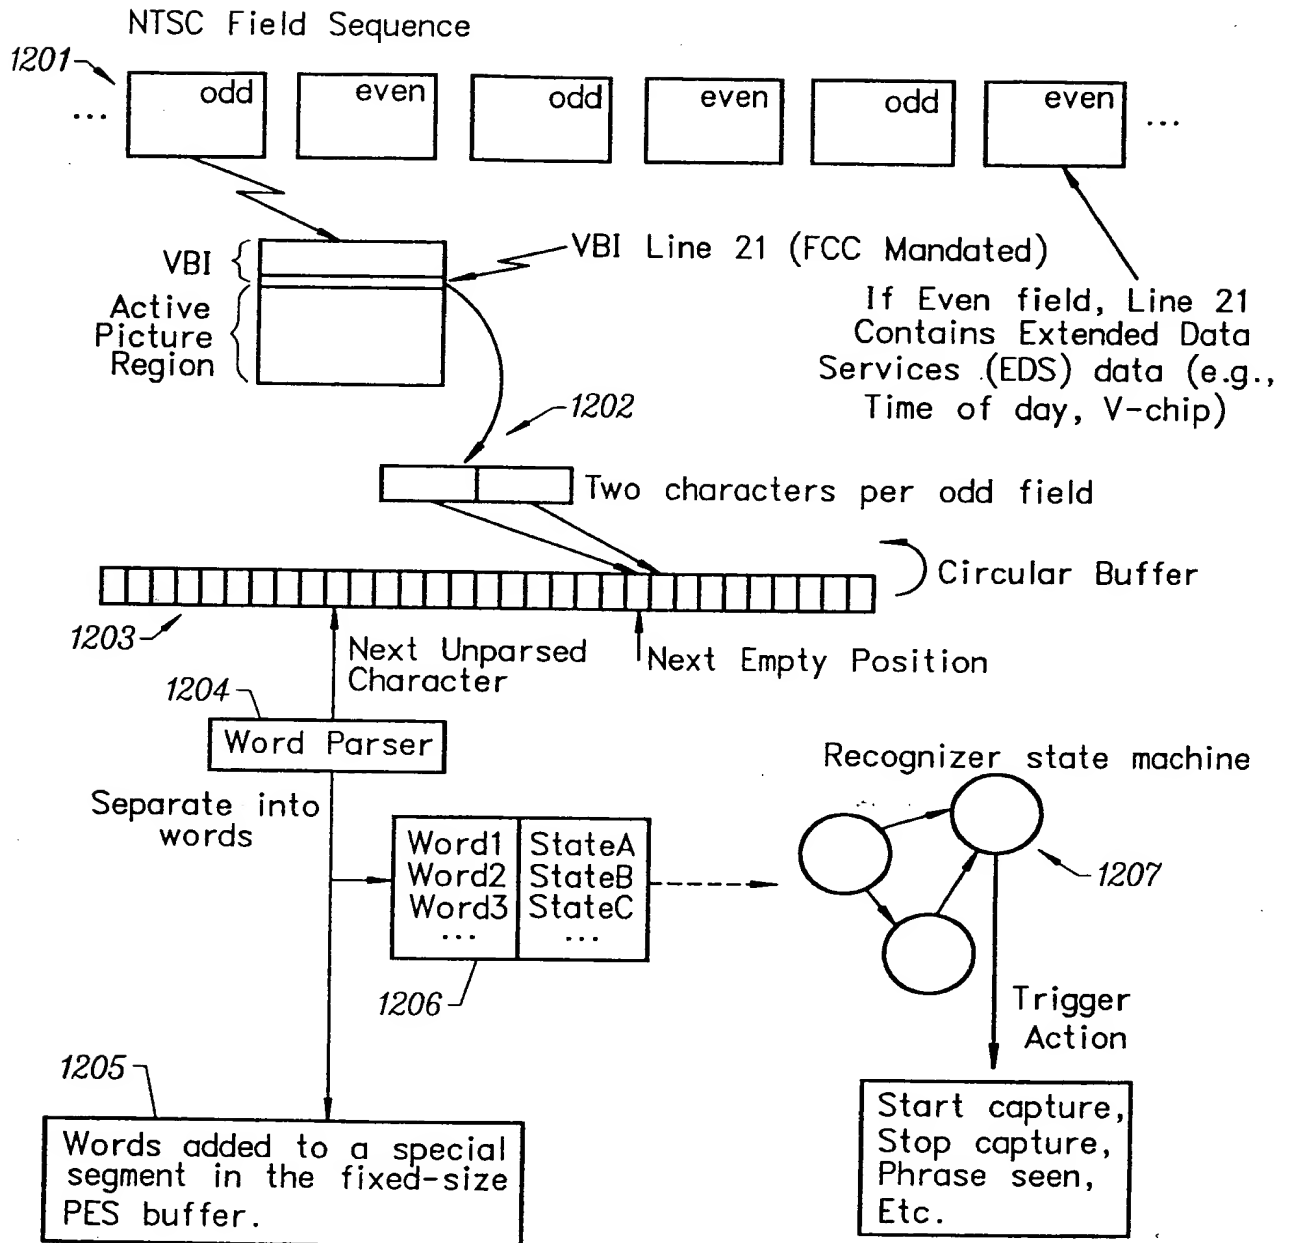 NTSC Field Sequence
1201
odd
even
odd
even
odd
even
...
...
VBI
VBI Line 21 (FCC Mandated)
Active
Picture
Region
If Even field, Line 21
Contains Extended Data
Services (EDS) data (e.g.,
Time of day, V-chip)
1202
Two characters per odd field
Circular Buffer
1203
Next Unparsed
Character
Next Empty Position
1204
Word Parser
Separate into
words
Recognizer state machine
Word1 StateA
Word2 StateB
Word3 StateC
... ...
1207
1206
Trigger
Action
1205
Words added to a special
segment in the fixed-size
PES buffer.
Start capture,
Stop capture,
Phrase seen,
Etc.